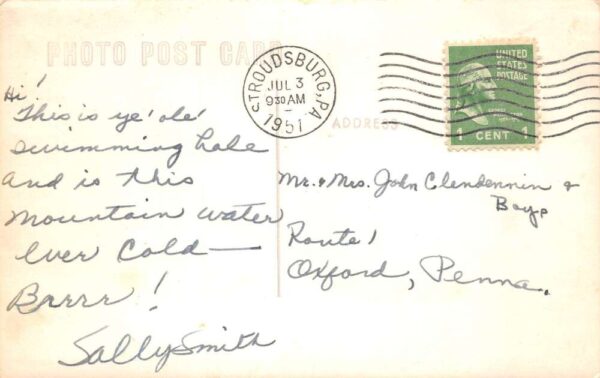 PHOTO POST CARD
Hi!
This is ye' ole'
swimming hole
and is this
mountain water
ever cold —
Brrrr!
Sally Smith
STROUDSBURG, PA
JUL 3
9 30 AM
1951
UNITED
STATES
POSTAGE
1 CENT 1
ADDRESS
Mr. & Mrs. John Clendennin &
Boys
Route 1
Oxford, Penna.